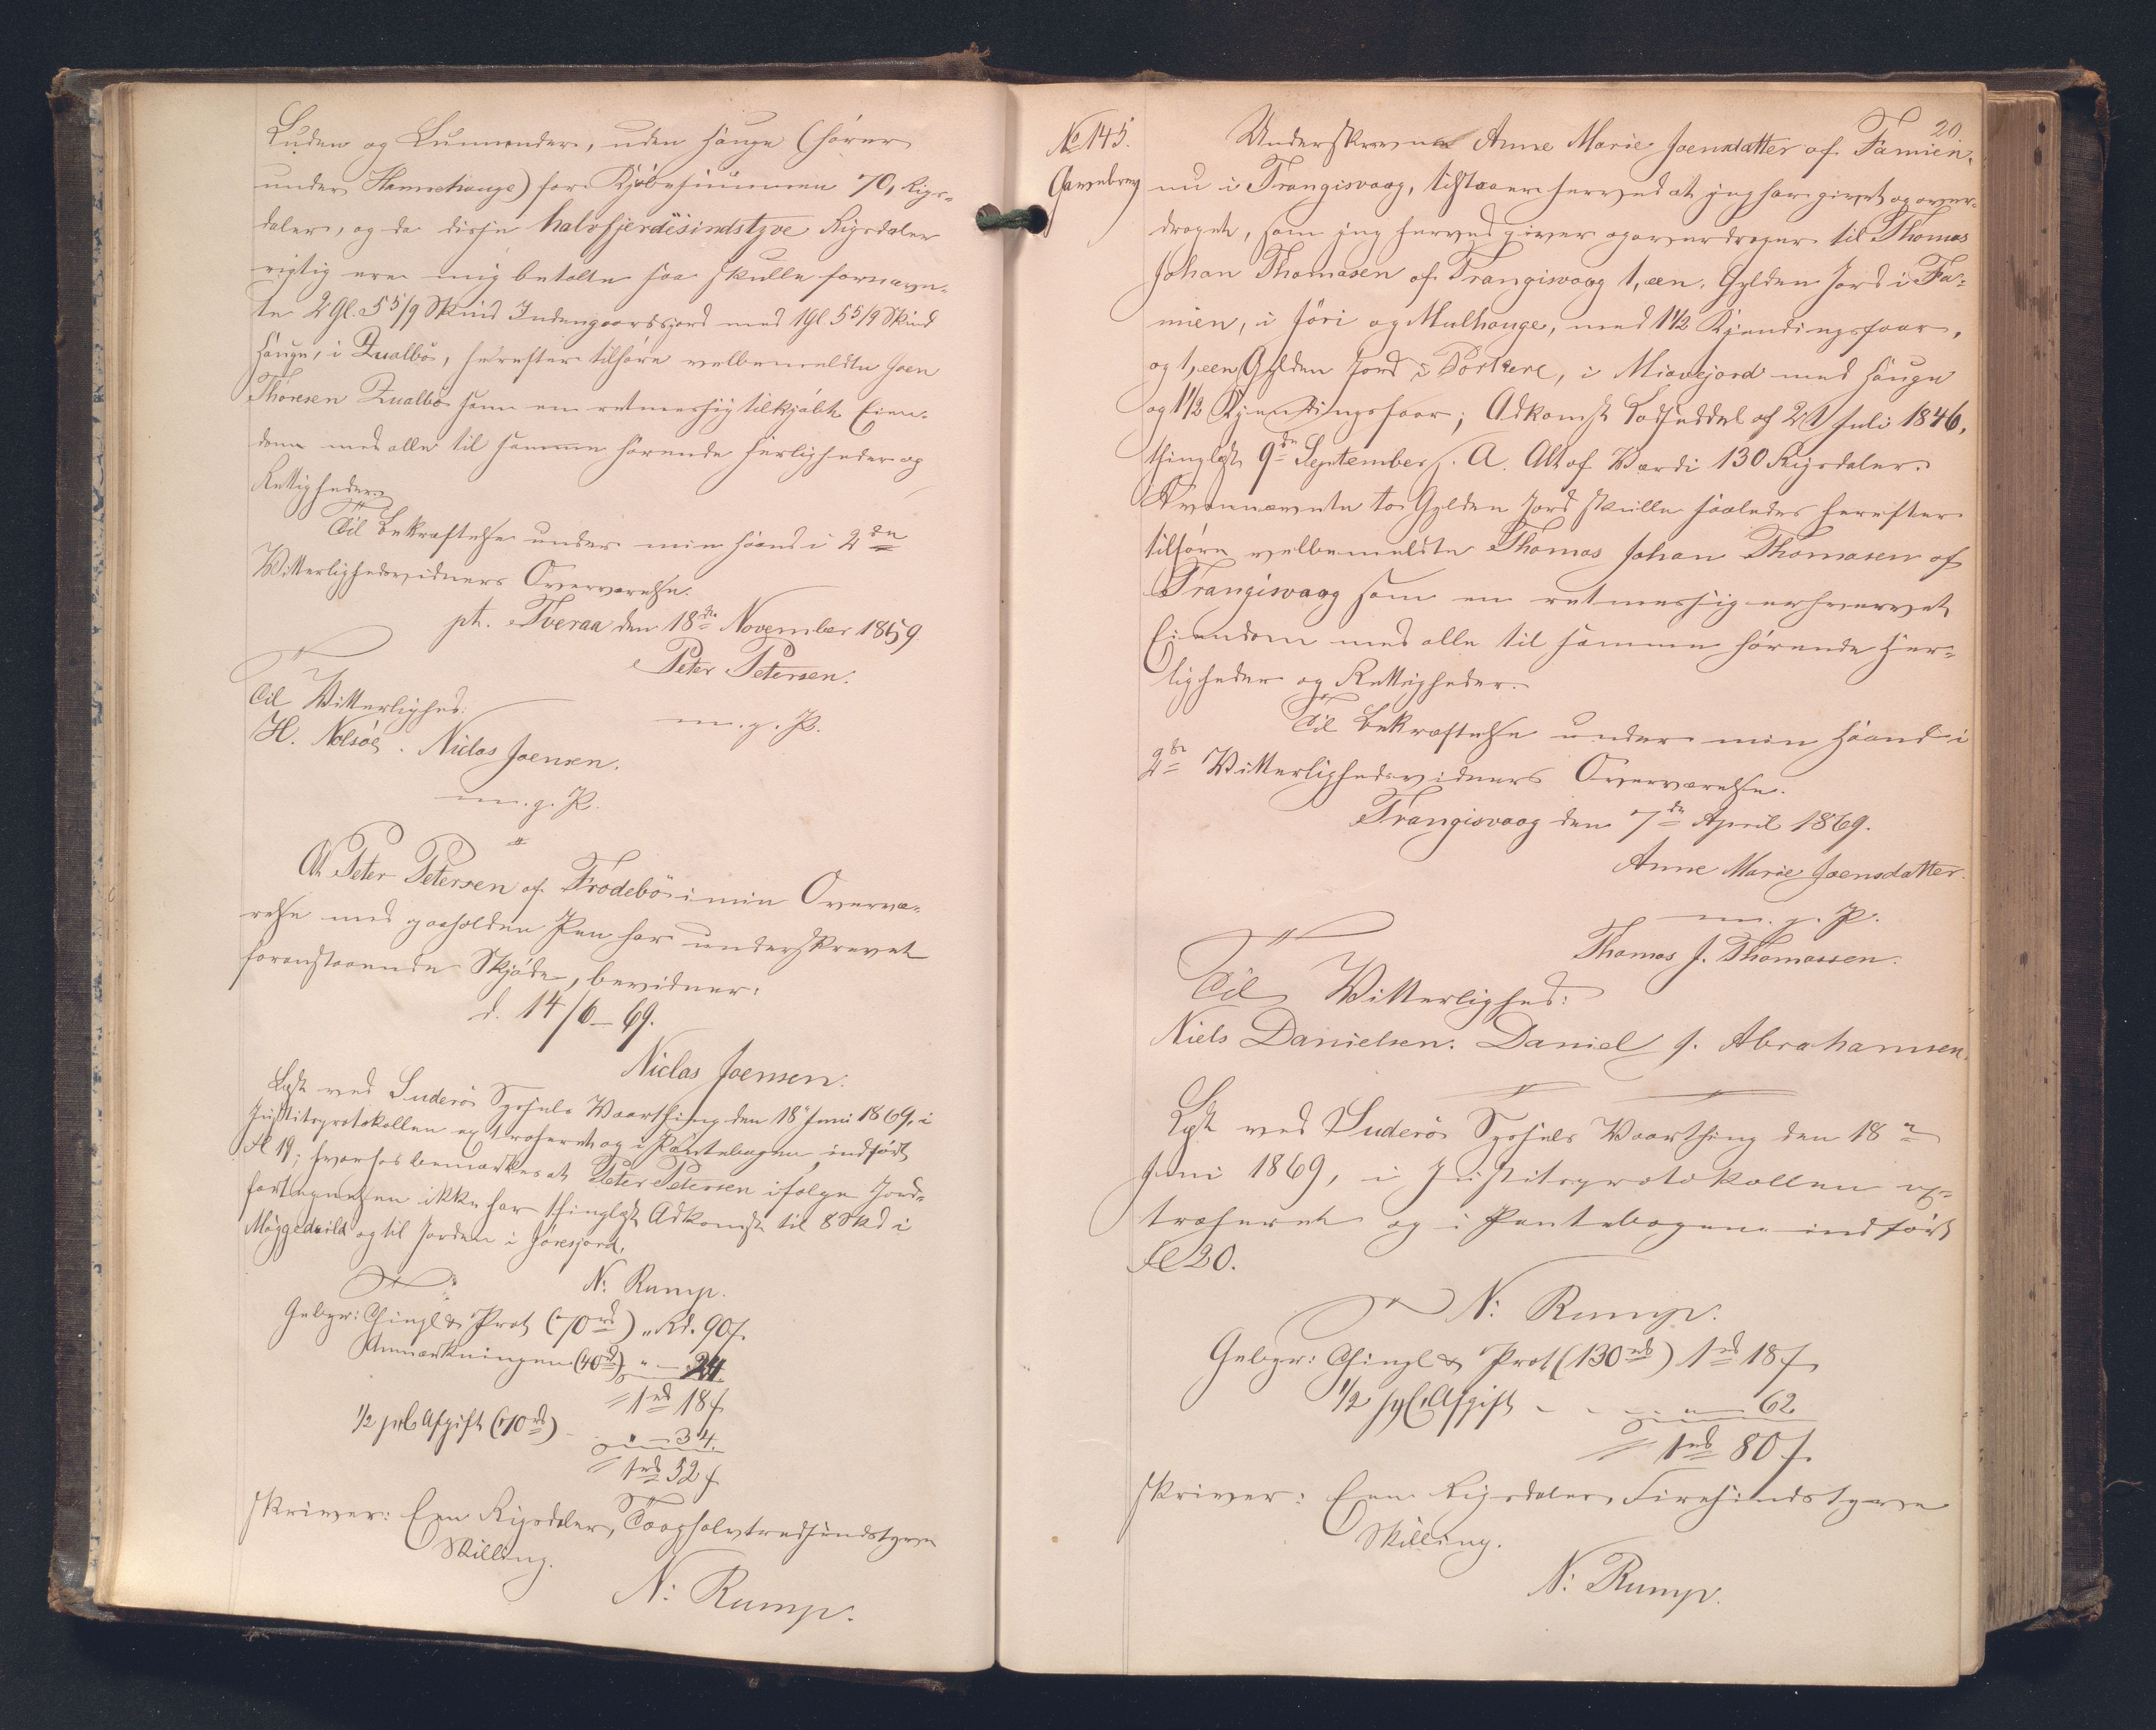 Luden og Lunnender, uden Hauge (hører
under Hamrehauge) for Kjøbesummen 70, Rigs-
daler, og da disse halvfjerdesindstyve Rigsdaler
rigtig ere mig betalte saa skulle fornævn-
te 2 Gl. 5 5/9 Skind Indengaardsjord med 1 Gl. 5 5/9 Skind
Hauge, i Qualbø, herefter tilhøre velbemeldte Joen
Thoresen Qualbø som en retmessig tilkjøbt Eien-
dom med alle til samme hørende Herligheder og
Rettigheder.
Til Bekræftelse under min Haand i 2de
Vitterlighedsvidners Overværelse.
pt. Tveraa den 18de November 1859.
Peter Petersen.
m. g. P.
Til Vitterlighed:
H. Nolsøe. Niclas Joensen.
m. g. P.
At Peter Petersen af Frodebø i min Overvæ-
relse med paaholden Pen har underskrevet
foranstaaende Skjøde, bevidner:
d. 14/6-69.
Niclas Joensen.
Læst ved Suderø Syssels Vaarthing den 18' Juni 1869, i
Justitsprotokollen extraheret og i Pantebogen indført
Fol 19; hvorhos bemærkes at Peter Petersen ifølge Jord-
fortegnelsen ikke har thinglæst Adkomst til 8 Skd i
og til Jorden i Høresjord.
N: Rump.
Gebyr: Thingl & Prot (70 rd) " Rd. 90 ſ.
Anmærkningen (40 rd) " - 24.
1 rd 18 ſ
1/2 pCt Afgift (70 rd) - " - 34.
1 rd 52 ſ
skriver: Een Rigsdaler, Tooghalvtredsindstyve
Skilling.
N: Rump.
20.
No 145.
Gavebrev
Underskrevne Anne Marie Joensdatter af Famien,
nu i Trangisvaag, tilstaaer herved at jeg har givet og over-
draget, som jeg herved giver og overdrager til Thomas
Johan Thomasen af Trangisvaag 1, een, Gylden Jord i Fa-
mien, i Høri og Mulhauge, med 1 1/2 Kjendingsfaar,
og 1, een Gylden Jord i Porkere, i Miavejord med Hauge
og 1 1/2 Kjendingsfaar; Adkomst Lodseddel af 21 Juli 1846,
thinglæst 9de September s. A. Alt af Værdi 130 Rigsdaler.
Ovennævnte to Gylden Jord skulle saaledes herefter
tilhøre velbemeldte Thomas Johan Thomasen af
Trangisvaag som en retmessig erhvervet
Eiendom med alle til samme hørende Her-
ligheder og Rettigheder.
Til Bekræftelse under min Haand i
2de Vitterlighedsvidners Overværelse.
Trangisvaag den 7de April 1869.
Anne Marie Joensdatter.
m. g. P.
Thomas J. Thomassen.
Til Vitterlighed:
Niels Danielsen. Daniel J. Abrahamsen.
Læst ved Suderø Syssels Vaarthing den 18'
Juni 1869, i Justitsprotokollen ex-
traheret og i Pantebogen indført
Fol 20.
N: Rump.
Gebyr: Thingl & Prot (130 rd) 1 rd 18 ſ
1/2 pCt Afgift - - - " - 62
1 rd 80 ſ.
skriver: Een Rigsdaler Firesindstyve
Skilling.
N: Rump.